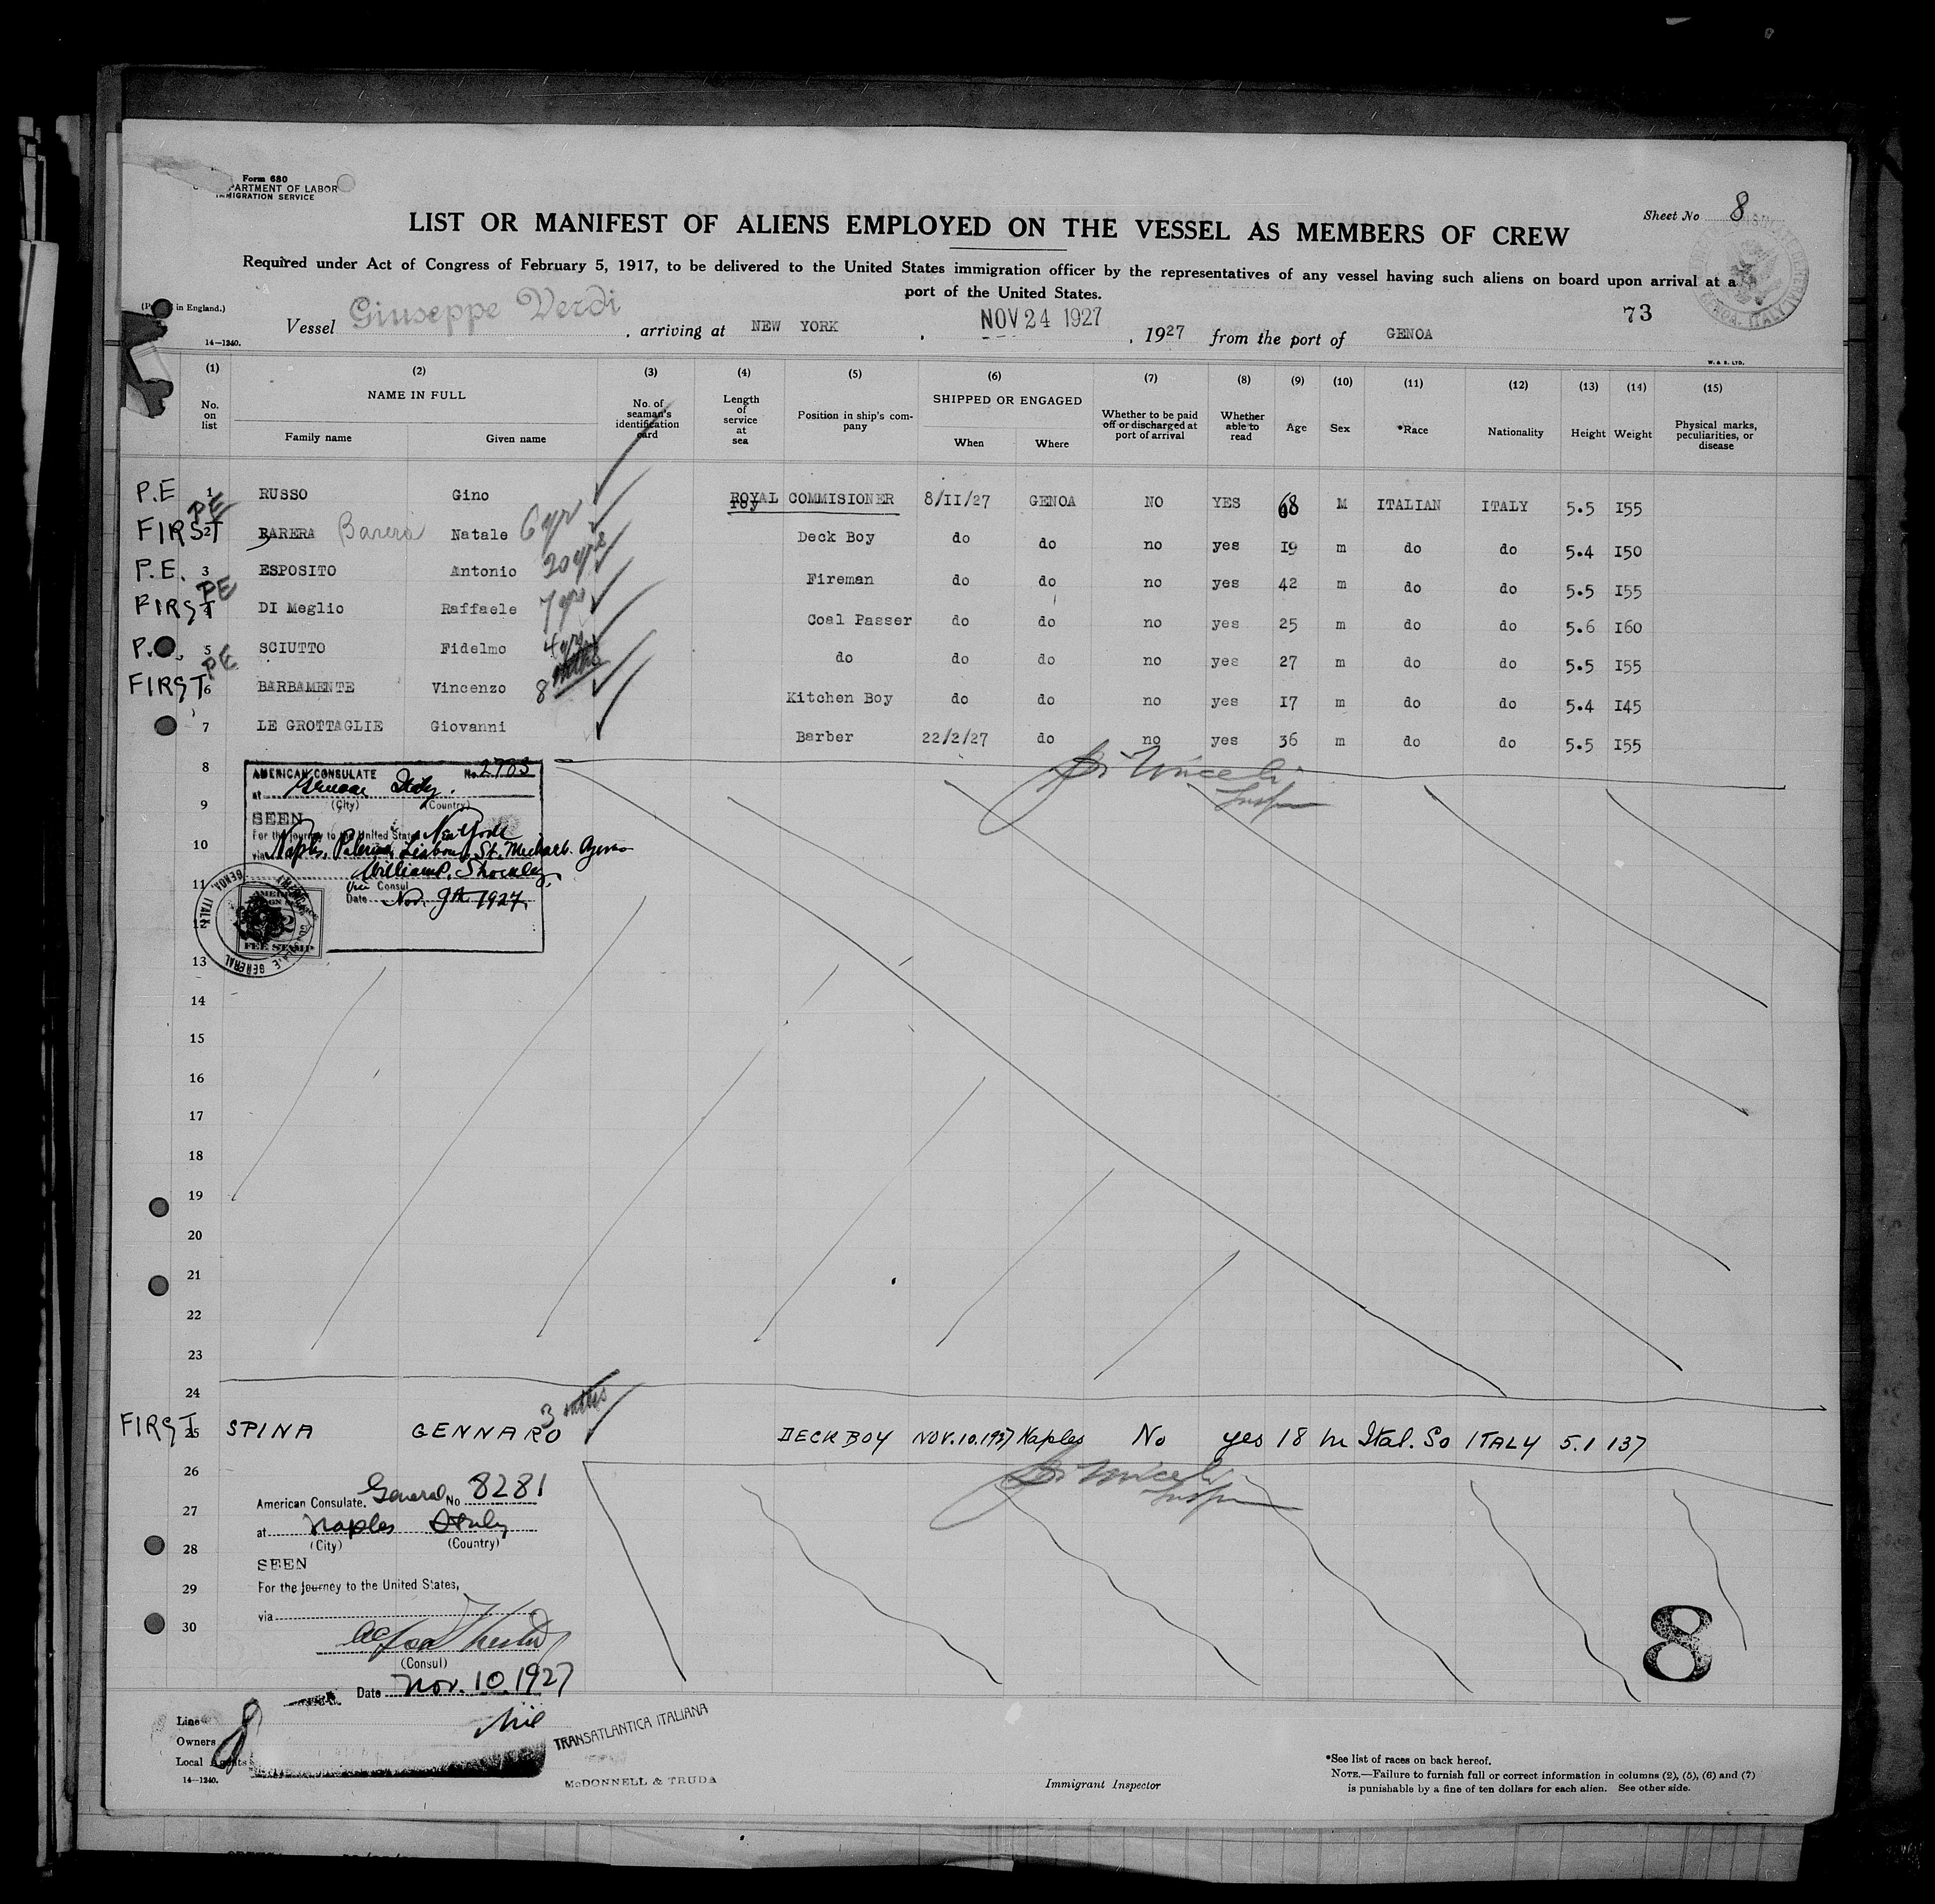 Form 680
DEPARTMENT OF LABOR
IMMIGRATION SERVICE
Sheet No 8
LIST OR MANIFEST OF ALIENS EMPLOYED ON THE VESSEL AS MEMBERS OF CREW
Required under Act of Congress of February 5, 1917, to be delivered to the United States immigration officer by the representatives of any vessel having such aliens on board upon arrival at a
port of the United States.
in England.)
73
Vessel Giuseppe Verdi, arriving at NEW YORK, NOV 24 1927, 1927 from the port of GENOA
14—1240.
W. & S. LTD.
(1) (2) (3) (4) (5) (6) (7) (8) (9) (10) (11) (12) (13) (14) (15)
No. on list NAME IN FULL Family name Given name No. of seaman's identification card Length of service at sea Position in ship's company SHIPPED OR ENGAGED When Where Whether to be paid off or discharged at port of arrival Whether able to read Age Sex *Race Nationality Height Weight Physical marks, peculiarities, or disease
P.E 1 RUSSO Gino ROYAL COMMISIONER 8/II/27 GENOA NO YES 68 M ITALIAN ITALY 5.5 I55
PE
FIRST 2 BARERA Barera Natale 6 yr Deck Boy do do no yes I9 m do do 5.4 I50
P.E. 3 ESPOSITO Antonio 20 yrs Fireman do do no yes 42 m do do 5.5 I55
PE
FIRST 4 DI Meglio Raffaele 7 yrs Coal Passer do do no yes 25 m do do 5.6 I60
P. 5 SCIUTTO Fidelmo 4 yrs do do do no yes 27 m do do 5.5 I55
PE
FIRST 6 BARBAMENTE Vincenzo 8 Kitchen Boy do do no yes I7 m do do 5.4 I45
7 LE GROTTAGLIE Giovanni Barber 22/2/27 do no yes 36 m do do 5.5 I55
8
AMERICAN CONSULATE No. 2783
at Genoa Italy.
(City) (Country)
9
SEEN
For the journey to the United States New York
10
via Naples, Palermo, Lisbon, St. Michaels Azores
William P. Shockley
11
Vice Consul
Date Nov. 9th 1927.
FEE STAMP
GENERAL
GENOA, ITALY
12
13
14
15
16
17
18
19
20
21
22
23
24
3 mths
FIRST 25 SPINA GENNARO DECK BOY NOV.10.1927 Naples No yes 18 m Ital. So ITALY 5.1 137
26
American Consulate. General No 8281
27
at Naples Italy
(City) (Country)
28
SEEN
29
For the journey to the United States,
via
30
(Consul)
Date Nov. 10. 1927
8
Line
TRANSATLANTICA ITALIANA
Owners
Local Agents
McDONNELL & TRUDA
14—1240.
Immigrant Inspector
*See list of races on back hereof.
NOTE.—Failure to furnish full or correct information in columns (2), (5), (6) and (7)
is punishable by a fine of ten dollars for each alien. See other side.